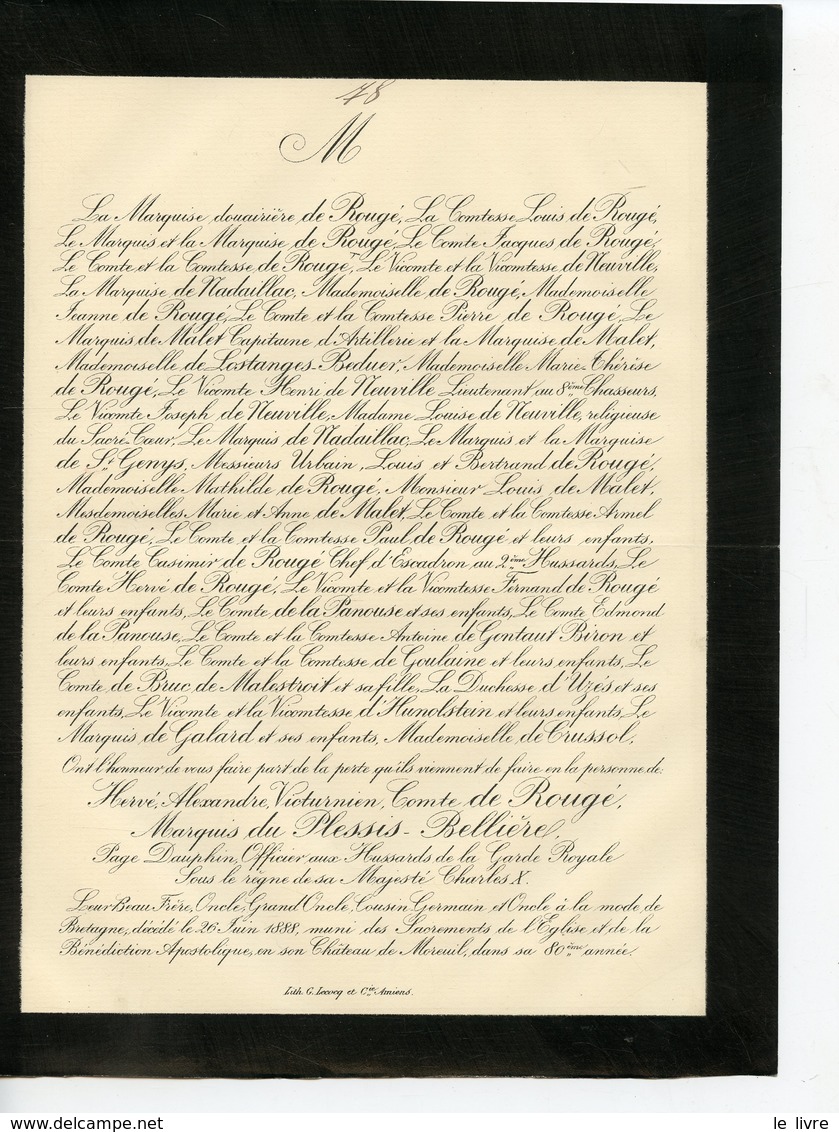 48
M
La Marquise douairière de Rougé, La Comtesse Louis de Rougé,
Le Marquis et la Marquise de Rougé, Le Comte Jacques de Rougé,
Le Comte et la Comtesse de Rougé, Le Vicomte et la Vicomtesse de Neuville,
La Marquise de Nadaillac, Mademoiselle de Rougé, Mademoiselle
Jeanne de Rougé, Le Comte et la Comtesse Pierre de Rougé, Le
Marquis de Malet Capitaine d'Artillerie et la Marquise de Malet,
Mademoiselle de Lostanges-Beduer, Mademoiselle Marie-Thérèse
de Rougé, Le Vicomte Henri de Neuville Lieutenant au 8ème Chasseurs,
Le Vicomte Joseph de Neuville, Madame Louise de Neuville, religieuse
du Sacré-Cœur, Le Marquis de Nadaillac, Le Marquis et la Marquise
de St Genys, Messieurs Urbain, Louis et Bertrand de Rougé,
Mademoiselle Mathilde de Rougé, Monsieur Louis de Malet,
Mesdemoiselles Marie et Anne de Malet, Le Comte et la Comtesse Armel
de Rougé, Le Comte et la Comtesse Paul de Rougé et leurs enfants,
Le Comte Casimir de Rougé Chef d'Escadron au 2ème Hussards, Le
Comte Hervé de Rougé, Le Vicomte et la Vicomtesse Fernand de Rougé
et leurs enfants, Le Comte de la Panouse et ses enfants, Le Comte Edmond
de la Panouse, Le Comte et la Comtesse Antoine de Gontaut Biron et
leurs enfants, Le Comte et la Comtesse de Goulaine et leurs enfants, Le
Comte de Bruc de Malestroit et sa fille, La Duchesse d'Uzès et ses
enfants, Le Vicomte et la Vicomtesse d'Hunolstein et leurs enfants, Le
Marquis de Galard et ses enfants, Mademoiselle de Crussol,
Ont l'honneur de vous faire part de la perte qu'ils viennent de faire en la personne de:
Hervé, Alexandre, Victurnien, Comte de Rougé,
Marquis du Plessis-Bellière,
Page Dauphin, Officier aux Hussards de la Garde Royale
Sous le règne de sa Majesté Charles X.
Leur Beau-Frère, Oncle, Grand Oncle, Cousin Germain et Oncle à la mode de
Bretagne, décédé le 26 Juin 1888, muni des Sacrements de l'Eglise et de la
Bénédiction Apostolique, en son Château de Moreuil, dans sa 80ème année.
Lith. G. Lecocq et Cie Amiens.
le livre